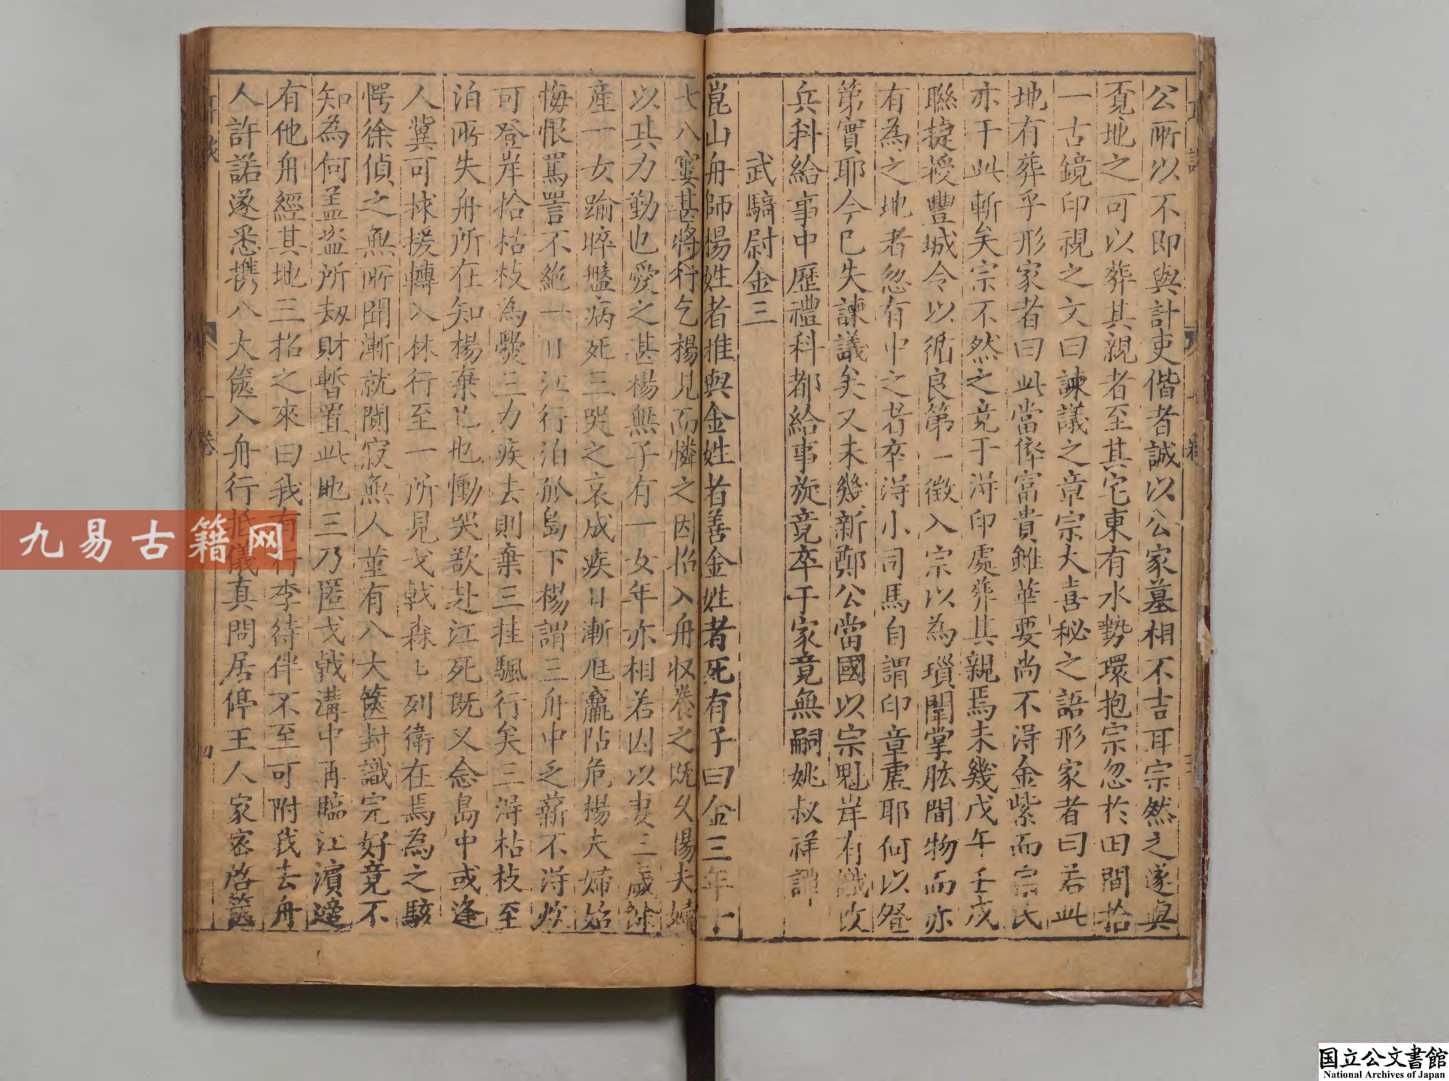 公所以不即與計吏偕者誠以公家墓相不吉耳宗然之遂與
覔地之可以葬其親者至其宅東有水勢環抱宗忽於田間拾
一古鏡印視之文曰諫議之章宗大喜秘之語形家者曰若此
地有葬乎形家者曰此當俸富貴雖華要尚不淂金紫而宗氏
亦干此斬矣宗不然之竟于淂印處葬其親焉未幾戊午壬戌
聯捷授豐城令以循良第一徵入宗以為瑣闈掌肱間物而亦
有為之地者忽有中之者卒淂小司馬自謂印章虛耶何以發
第實耶今已失諫議矣又未幾新鄭公當國以宗魁岸有 改
兵科給事中歷禮科都給事旋竟卒于家竟無嗣姚叔祥
武騎尉金三
崑山舟師楊姓者雅與金姓者善金姓者死有子曰金三年十
七八窶甚將行乞楊見而憐之因招入舟收養之既久楊夫婦
以其力勤也愛之甚楊無子有一女年亦相若因以妻三歲餘
產一女踰晬 病死三哭之哀成疾日漸尪羸阽危楊夫婦始
悔恨罵詈不絶一日江行泊於島下楊謂三舟中乏薪不淂炊
可登岸拾枯枝為爨三力疾去則棄三挂颿行矣三淂枯枝至
泊所失舟所在知楊棄己也慟哭欲赴江死既又念島中或逢
人冀可捄援轉入林行至一所見戈戟森匕列衛在焉為之駭
愕徐偵之無所聞漸就闃寂無人堇有八大篋封識完好竟不
知為何盖盜所刼財暫置此地三乃匿戈戟溝中再臨江濵適
有他舟經其地三招之來曰我有行李待伴不至可附我去舟
人許諾遂悉攜八大篋入舟行抵儀真問居停王人家密啓篋
九易古籍网
国立公文書館
National Archives of Japan